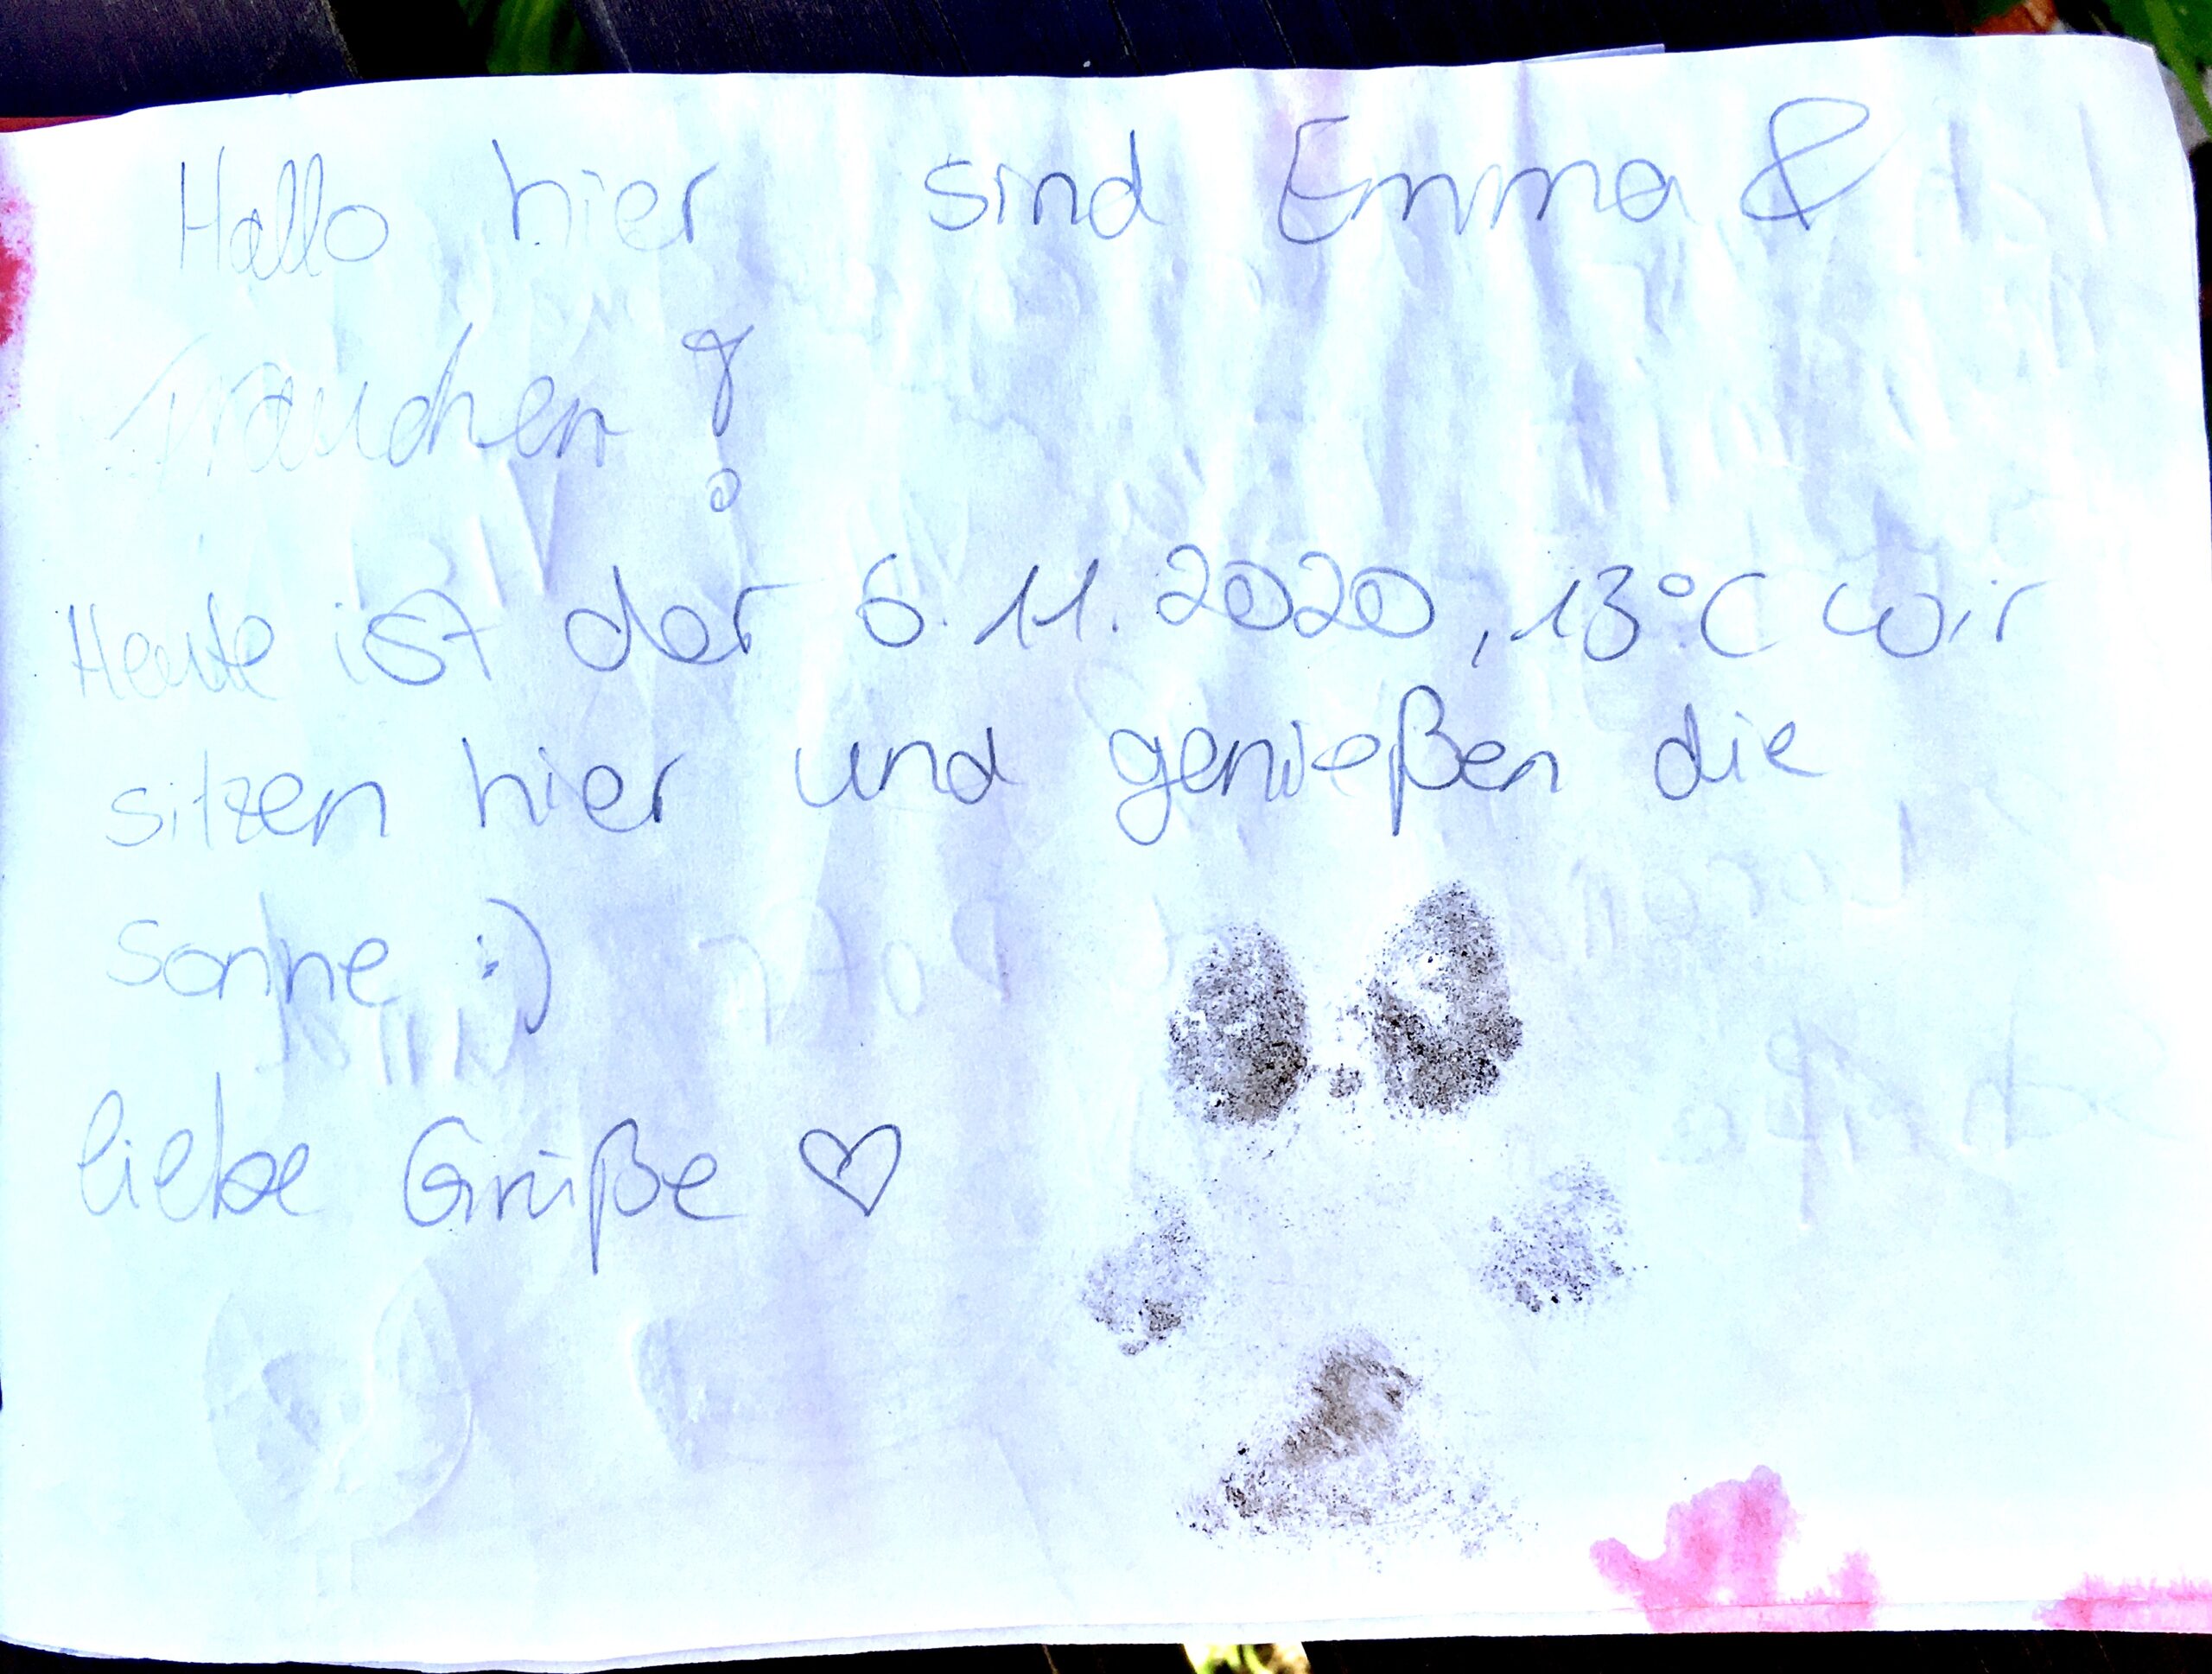 Hallo hier sind Emma &
Frauchen !
Heute ist der 6.11.2020, 13°C wir
sitzen hier und genießen die
Sonne :)
liebe Grüße ♡